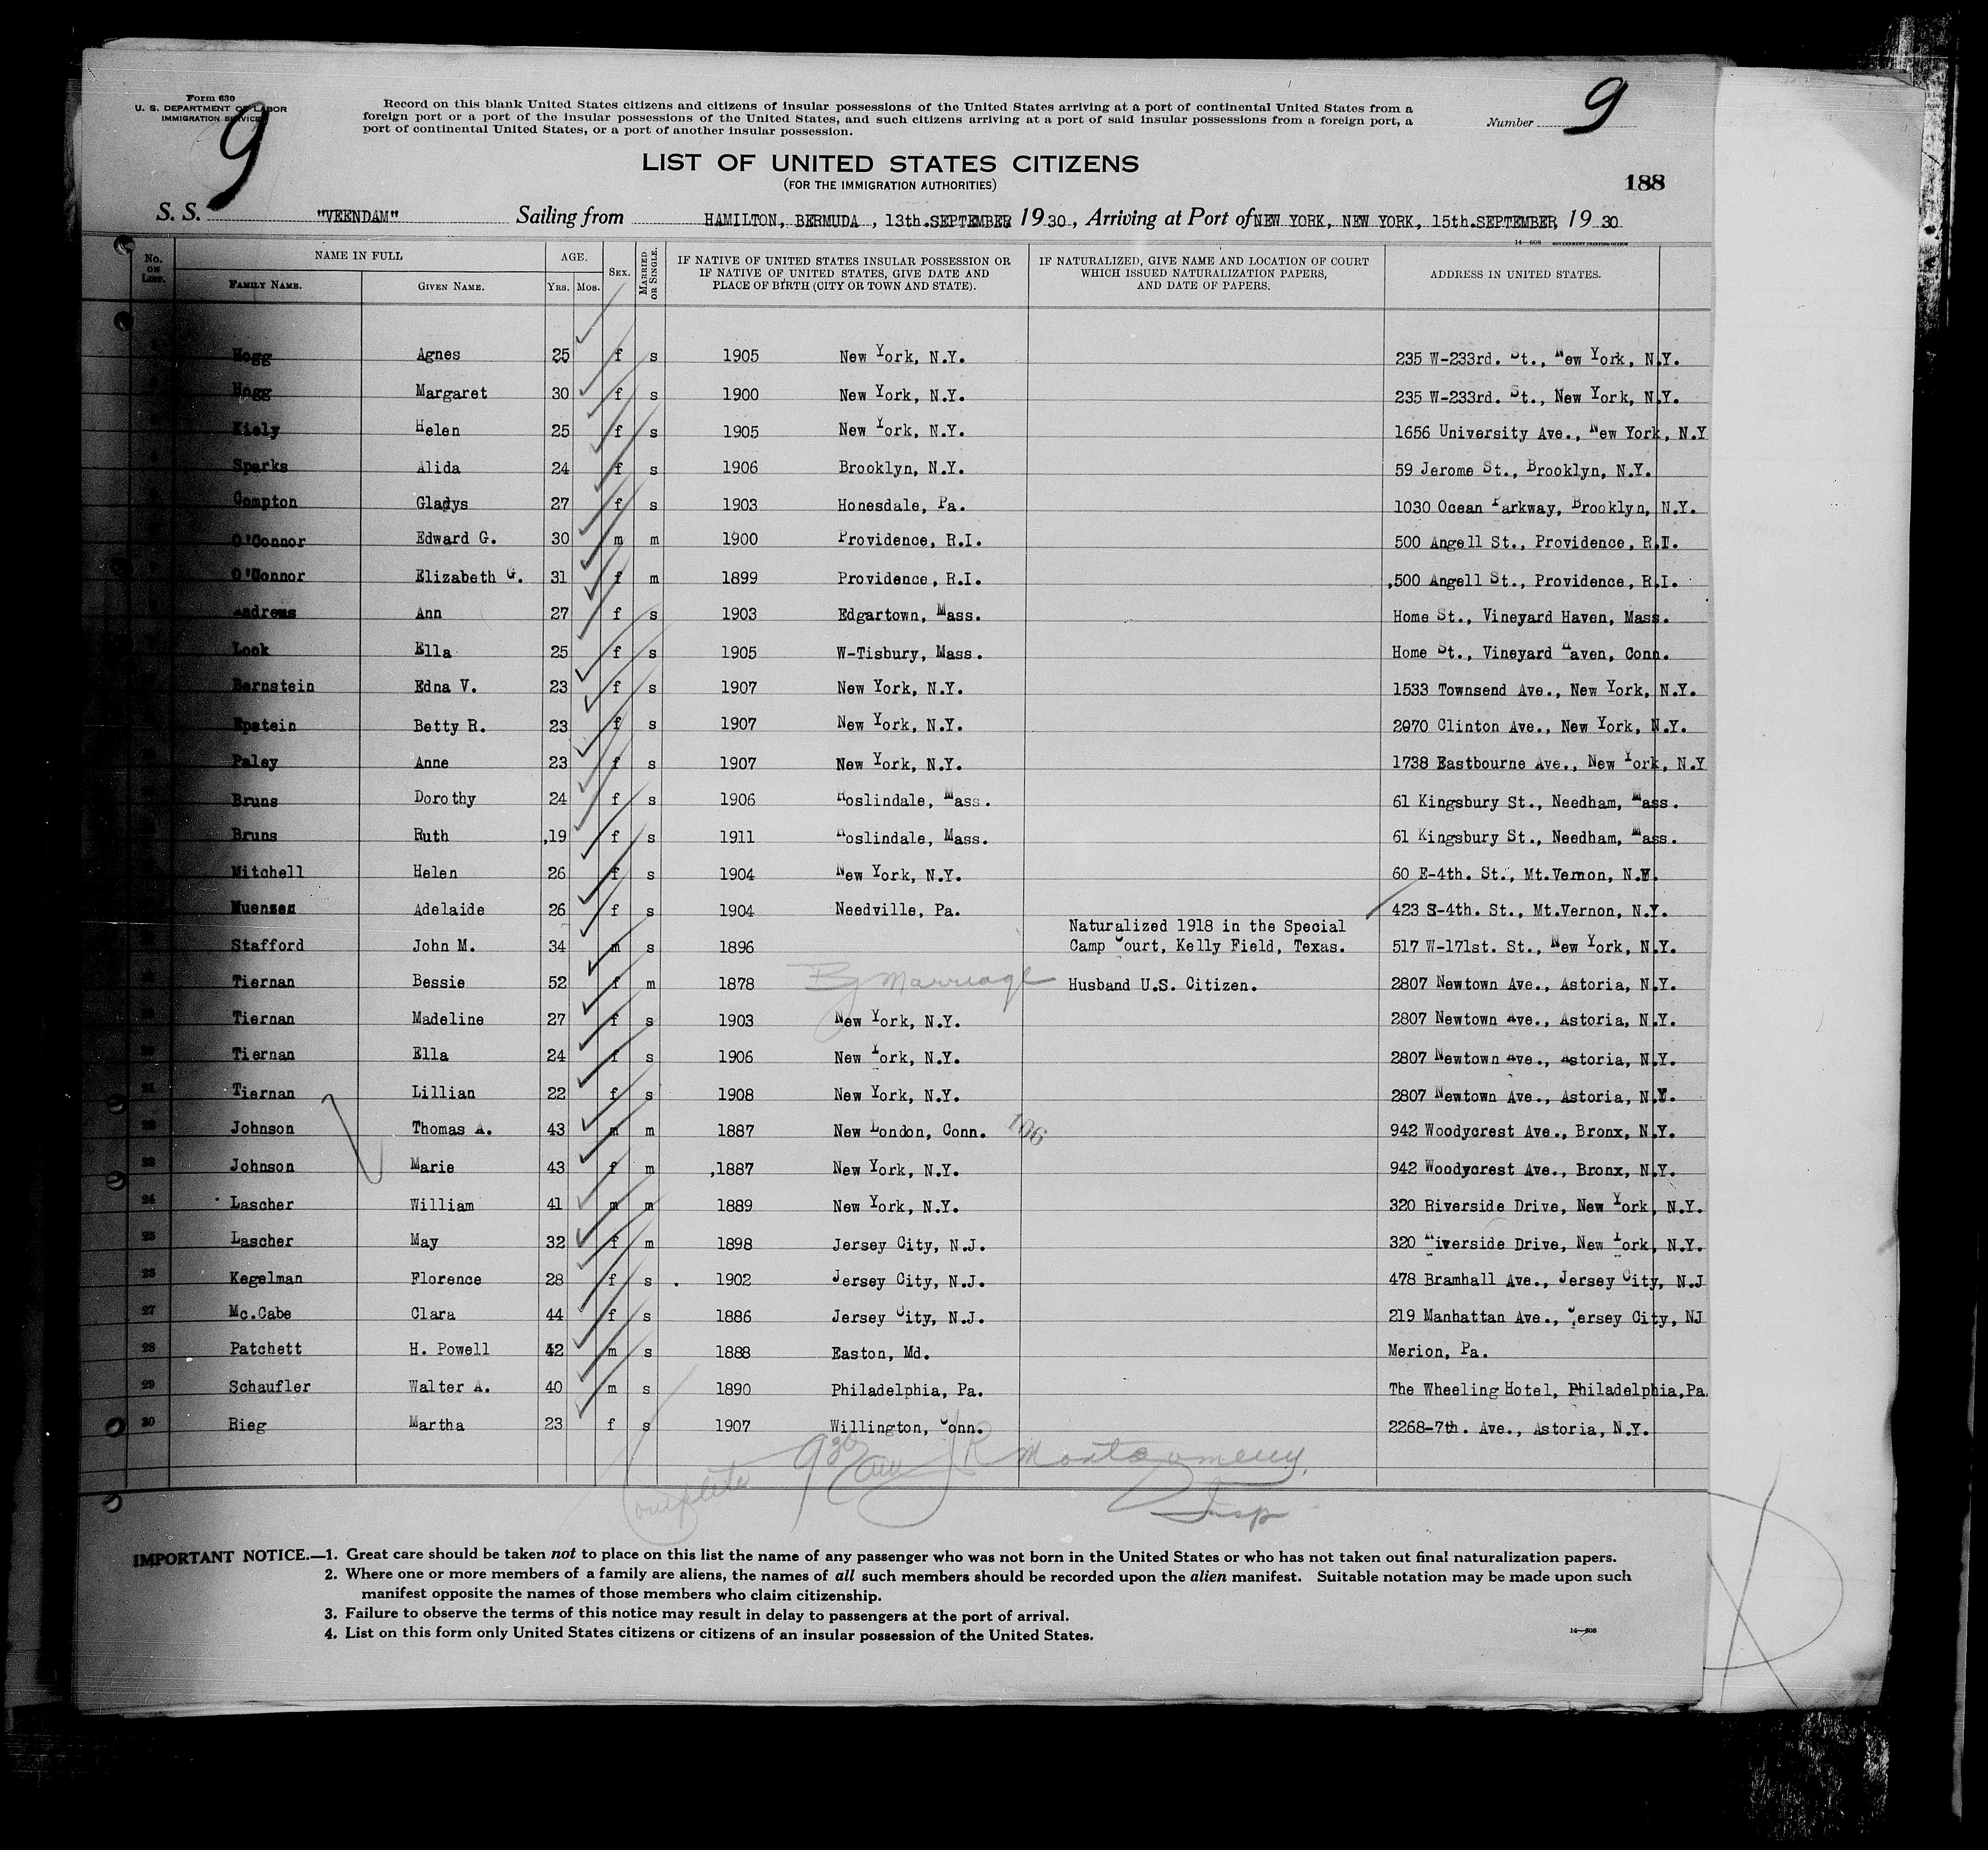 Form 630
U. S. DEPARTMENT OF LABOR
IMMIGRATION SERVICE
9
Record on this blank United States citizens and citizens of insular possessions of the United States arriving at a port of continental United States from a
foreign port or a port of the insular possessions of the United States, and such citizens arriving at a port of said insular possessions from a foreign port, a
port of continental United States, or a port of another insular possession.
Number 9
LIST OF UNITED STATES CITIZENS
(FOR THE IMMIGRATION AUTHORITIES)
188
S. S. "VEENDAM" Sailing from HAMILTON, BERMUDA , 13th.SEPTEMBER 1930., Arriving at Port of NEW YORK, NEW YORK, 15th.SEPTEMBER, 19 30
14—608 GOVERNMENT PRINTING OFFICE
No. ON LIST. NAME IN FULL FAMILY NAME. GIVEN NAME. AGE. YRS. MOS. SEX. MARRIED OR SINGLE. IF NATIVE OF UNITED STATES INSULAR POSSESSION OR IF NATIVE OF UNITED STATES, GIVE DATE AND PLACE OF BIRTH (CITY OR TOWN AND STATE). IF NATURALIZED, GIVE NAME AND LOCATION OF COURT WHICH ISSUED NATURALIZATION PAPERS, AND DATE OF PAPERS. ADDRESS IN UNITED STATES.
Hogg Agnes 25 f s 1905 New York, N.Y. 235 W-233rd. St., New York, N.Y.
Hogg Margaret 30 f s 1900 New York, N.Y. 235 W-233rd. St., New York, N.Y.
Kiely Helen 25 f s 1905 New York, N.Y. 1656 University Ave., New York, N.Y
Sparks Alida 24 f s 1906 Brooklyn, N.Y. 59 Jerome St., Brooklyn, N.Y.
Compton Gladys 27 f s 1903 Honesdale, Pa. 1030 Ocean Parkway, Brooklyn, N.Y.
O'Connor Edward G. 30 m m 1900 Providence, R.I. 500 Angell St., Providence, R.I.
O'Connor Elizabeth G. 31 f m 1899 Providence, R.I. ,500 Angell St., Providence, R.I.
Andrews Ann 27 f s 1903 Edgartown, Mass. Home St., Vineyard Haven, Mass.
Look Ella 25 f s 1905 W-Tisbury, Mass. Home St., Vineyard Haven, Conn.
Bernstein Edna V. 23 f s 1907 New York, N.Y. 1533 Townsend Ave., New York, N.Y.
Epstein Betty R. 23 f s 1907 New York, N.Y. 2070 Clinton Ave., New York, N.Y.
Paley Anne 23 f s 1907 New York, N.Y. 1738 Eastbourne Ave., New York, N.Y
Bruns Dorothy 24 f s 1906 Roslindale, Mass. 61 Kingsbury St., Needham, Mass.
Bruns Ruth ,19 f s 1911 Roslindale, Mass. 61 Kingsbury St., Needham, Mass.
Mitchell Helen 26 f s 1904 New York, N.Y. 60 E-4th. St., Mt.Vernon, N.Y.
Muenzen Adelaide 26 f s 1904 Needville, Pa. 423 S-4th. St., Mt.Vernon, N.Y.
Naturalized 1918 in the Special
Stafford John M. 34 m s 1896 Camp Court, Kelly Field, Texas. 517 W-171st. St., New York, N.Y.
Tiernan Bessie 52 f m 1878 By Marriage Husband U.S. Citizen. 2807 Newtown Ave., Astoria, N.Y.
Tiernan Madeline 27 f s 1903 New York, N.Y. 2807 Newtown Ave., Astoria, N.Y.
20 Tiernan Ella 24 f s 1906 New York, N.Y. 2807 Newtown Ave., Astoria, N.Y.
21 Tiernan Lillian 22 f s 1908 New York, N.Y. 2807 Newtown Ave., Astoria, N.Y.
22 Johnson Thomas A. 43 m m 1887 New London, Conn. 106 942 Woodycrest Ave., Bronx, N.Y.
23 Johnson Marie 43 f m ,1887 New York, N.Y. 942 Woodycrest Ave., Bronx, N.Y.
24 Lascher William 41 m m 1889 New York, N.Y. 320 Riverside Drive, New York, N.Y.
25 Lascher May 32 f m 1898 Jersey City, N.J. 320 Riverside Drive, New York, N.Y.
26 Kegelman Florence 28 f s . 1902 Jersey City, N.J. 478 Bramhall Ave., Jersey City, N.J
27 Mc.Cabe Clara 44 f s 1886 Jersey City, N.J. 219 Manhattan Ave., Jersey City, NJ
28 Patchett H. Powell 42 m s 1888 Easton, Md. Merion, Pa.
29 Schaufler Walter A. 40 m s 1890 Philadelphia, Pa. The Wheeling Hotel, Philadelphia,Pa.
30 Rieg Martha 23 f s 1907 Willington, Conn. 2268-7th. Ave., Astoria, N.Y.
Complete 930 am JR Montgomery.
Insp
IMPORTANT NOTICE.—1. Great care should be taken not to place on this list the name of any passenger who was not born in the United States or who has not taken out final naturalization papers.
2. Where one or more members of a family are aliens, the names of all such members should be recorded upon the alien manifest. Suitable notation may be made upon such
manifest opposite the names of those members who claim citizenship.
3. Failure to observe the terms of this notice may result in delay to passengers at the port of arrival.
4. List on this form only United States citizens or citizens of an insular possession of the United States.
14—608